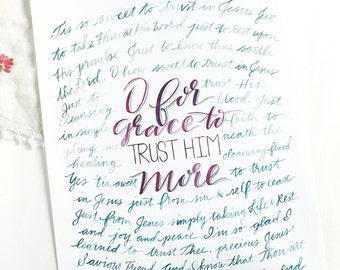 Tis so sweet to trust in Jesus Just
to take Him at His Word just to rest upon
His promise Just to know thus saith
the Lord. O how sweet to trust in Jesus
Just to trust His
cleansing blood. Just
in simple faith to
plunge me neath the
healing cleansing flood
O for
grace to
TRUST HIM
more
Yes tis sweet to trust
in Jesus just from sin & self to cease
Just from Jesus simply taking Life & Rest
and joy and peace I'm so glad I
learned to trust Thee, precious Jesus
Saviour Friend And I know that Thou art
end